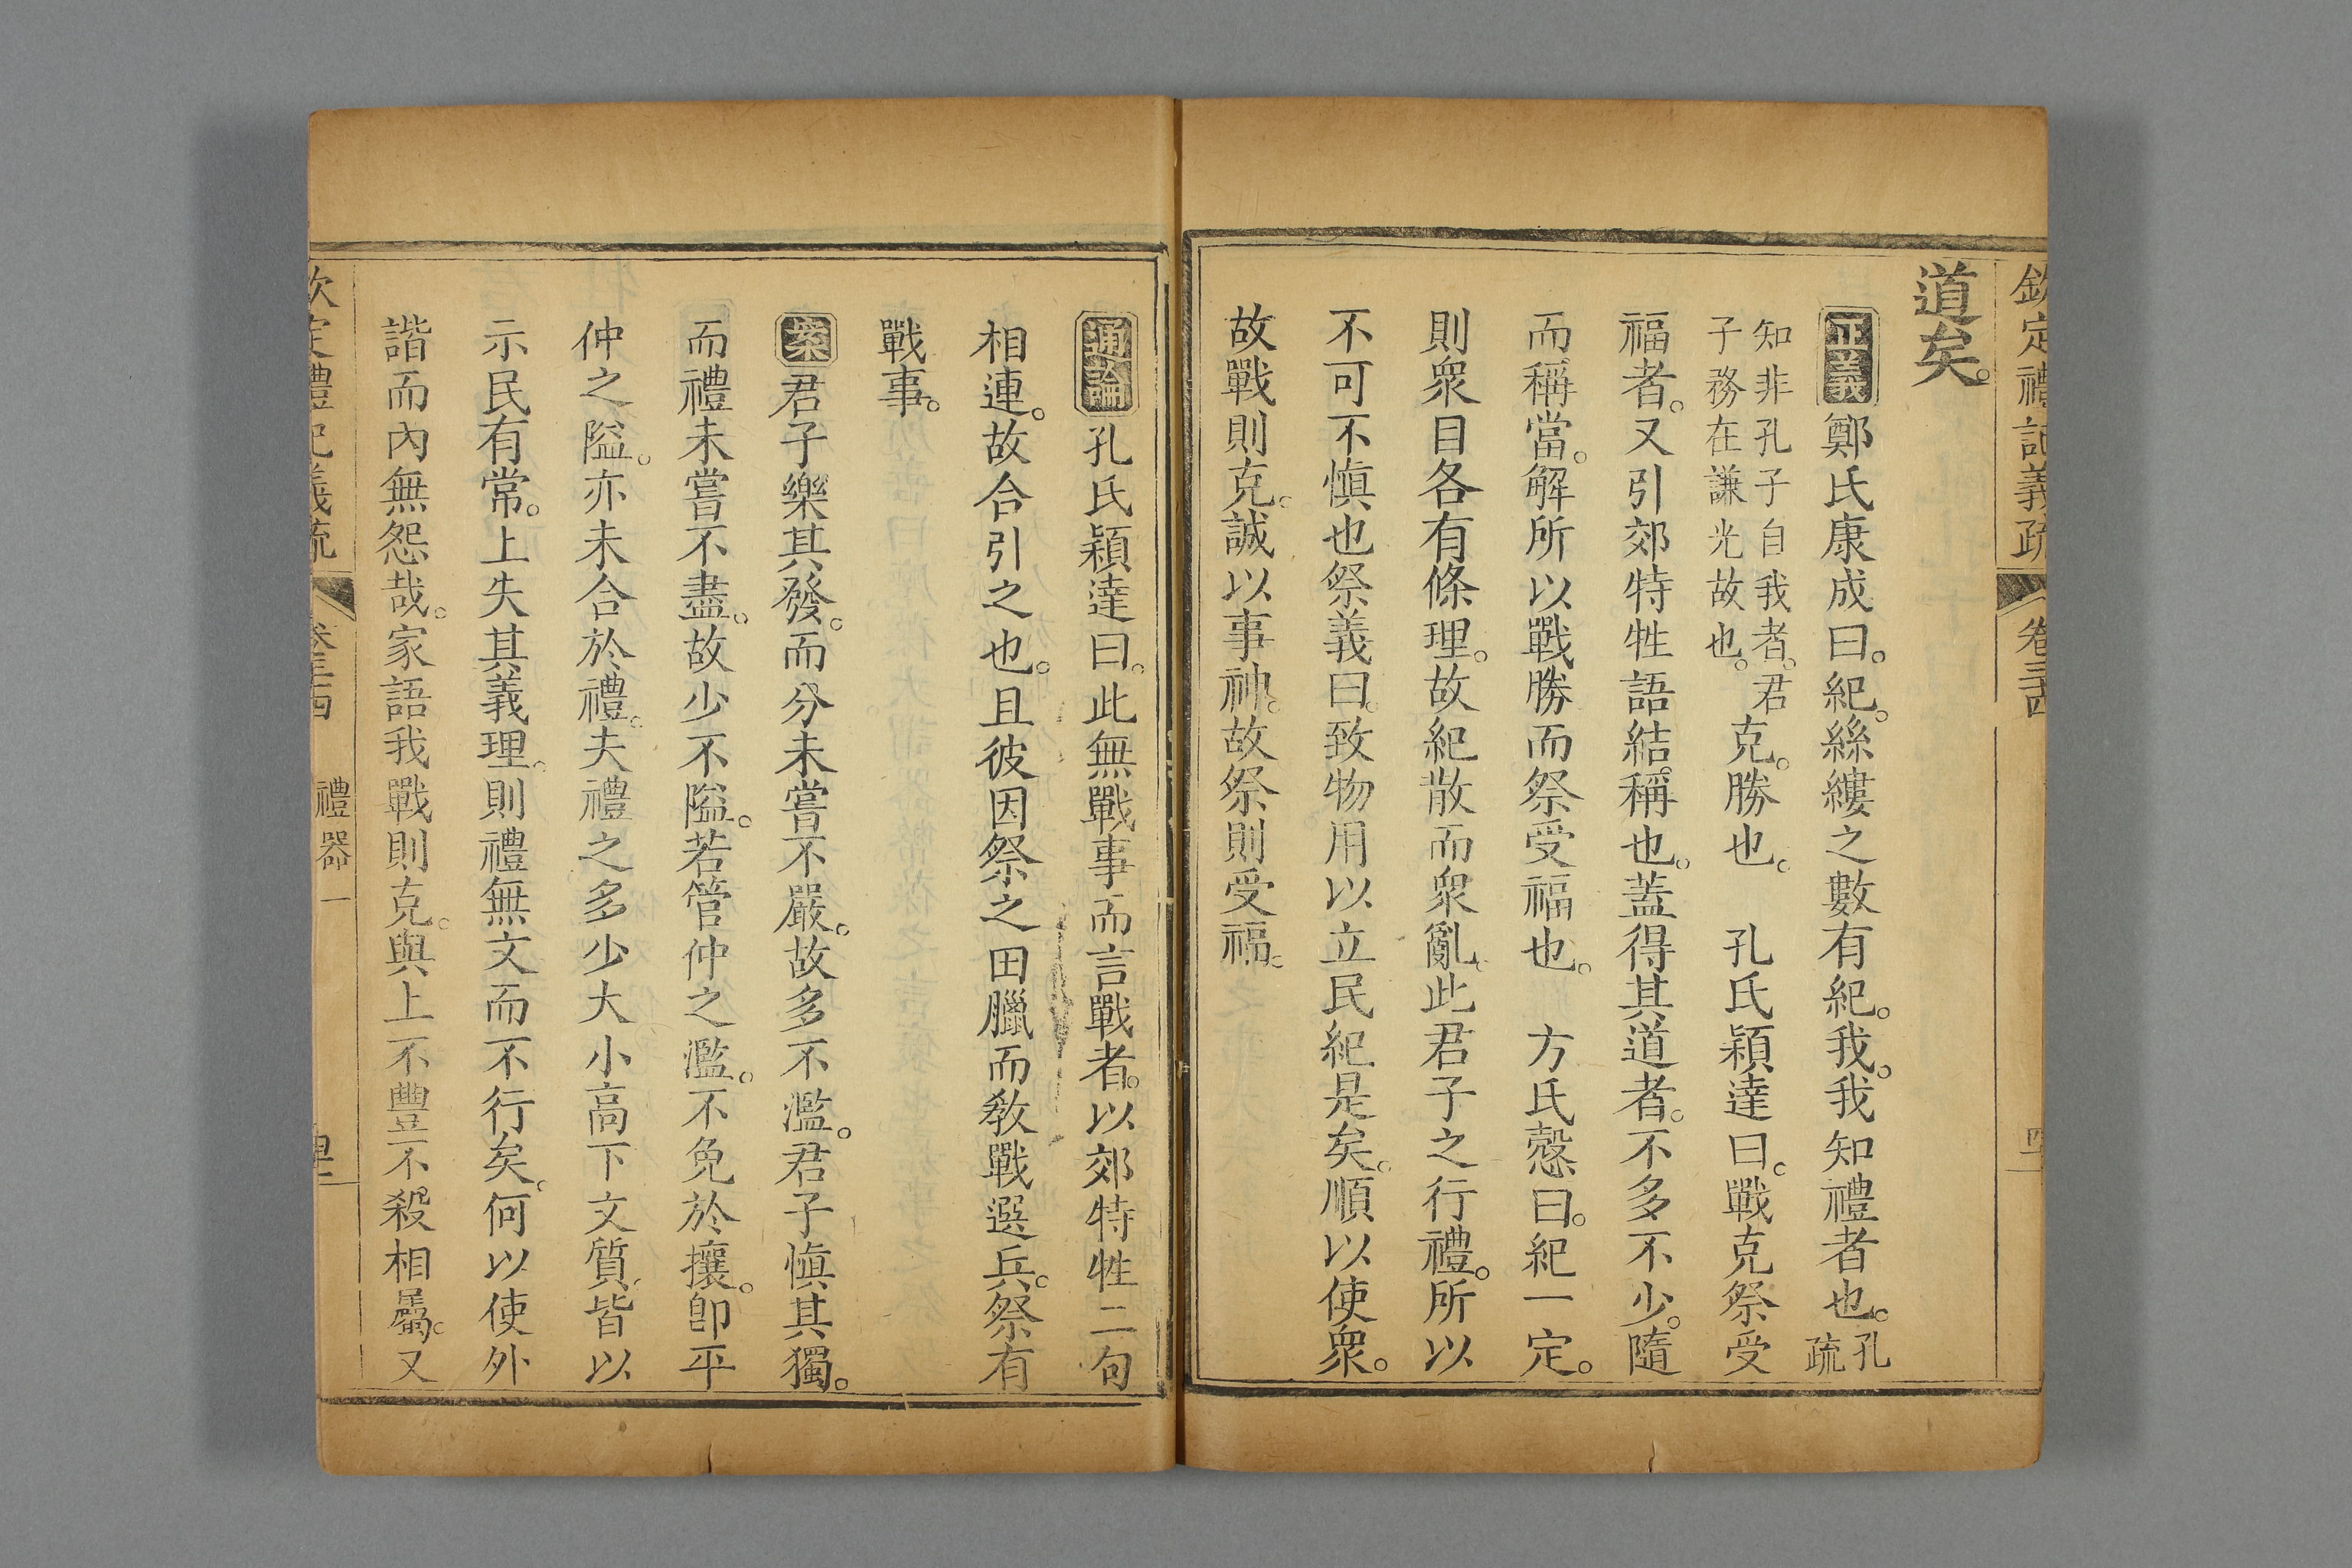 欽定禮記義疏 卷三十四
道矣。
正義 鄭氏康成曰。紀。絲縷之數有紀。我。我知禮者也。孔疏
知非孔子自我者。君子務在謙光故也。克。勝也。 孔氏穎達曰。戰克祭受
福者。又引郊特牲語結稱也。蓋得其道者。不多不少。隨
而稱當。解所以戰勝而祭受福也。 方氏慤曰。紀一定。
則衆目各有條理。故紀散而衆亂。此君子之行禮。所以
不可不愼也祭義曰。致物用以立民紀是矣。順以使衆。
故戰則克。誠以事神。故祭則受福。
通論 孔氏穎達曰。此無戰事而言戰者。以郊特牲二句
相連。故合引之也。且彼因祭之田臘而敎戰選兵。祭有
戰事。
案 君子樂其發。而分未嘗不嚴。故多不濫。君子愼其獨。
而禮未嘗不盡。故少不隘。若管仲之濫。不免於攘。卽平
仲之隘。亦未合於禮。夫禮之多少大小高下文質。皆以
示民有常。上失其義理。則禮無文而不行矣。何以使外
諧而內無怨哉。家語我戰則克。與上不豐不殺相屬。又
欽定禮記義疏 卷三十四 禮器一